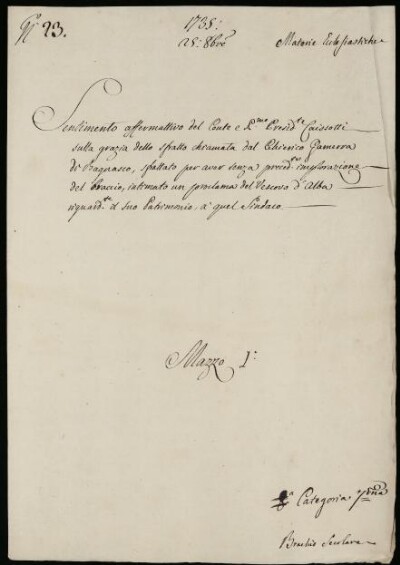 N.° 23.
1735:
25: 8bre
Materie Eclesiastiche
Sentimento affermativo del Conte e P.mo Presid.te Caissotti
sulla grazia dello sfratto chiamata dal Chierico
di Bagnasco, sfrattato per aver senza preced.e implorazione
del braccio, intimato un proclama del Vescovo d'Alba
riguard.te il suo Patrimonio, a quel Sindaco
Mazzo I.°
Categoria 7.ma
Brachio Seculare